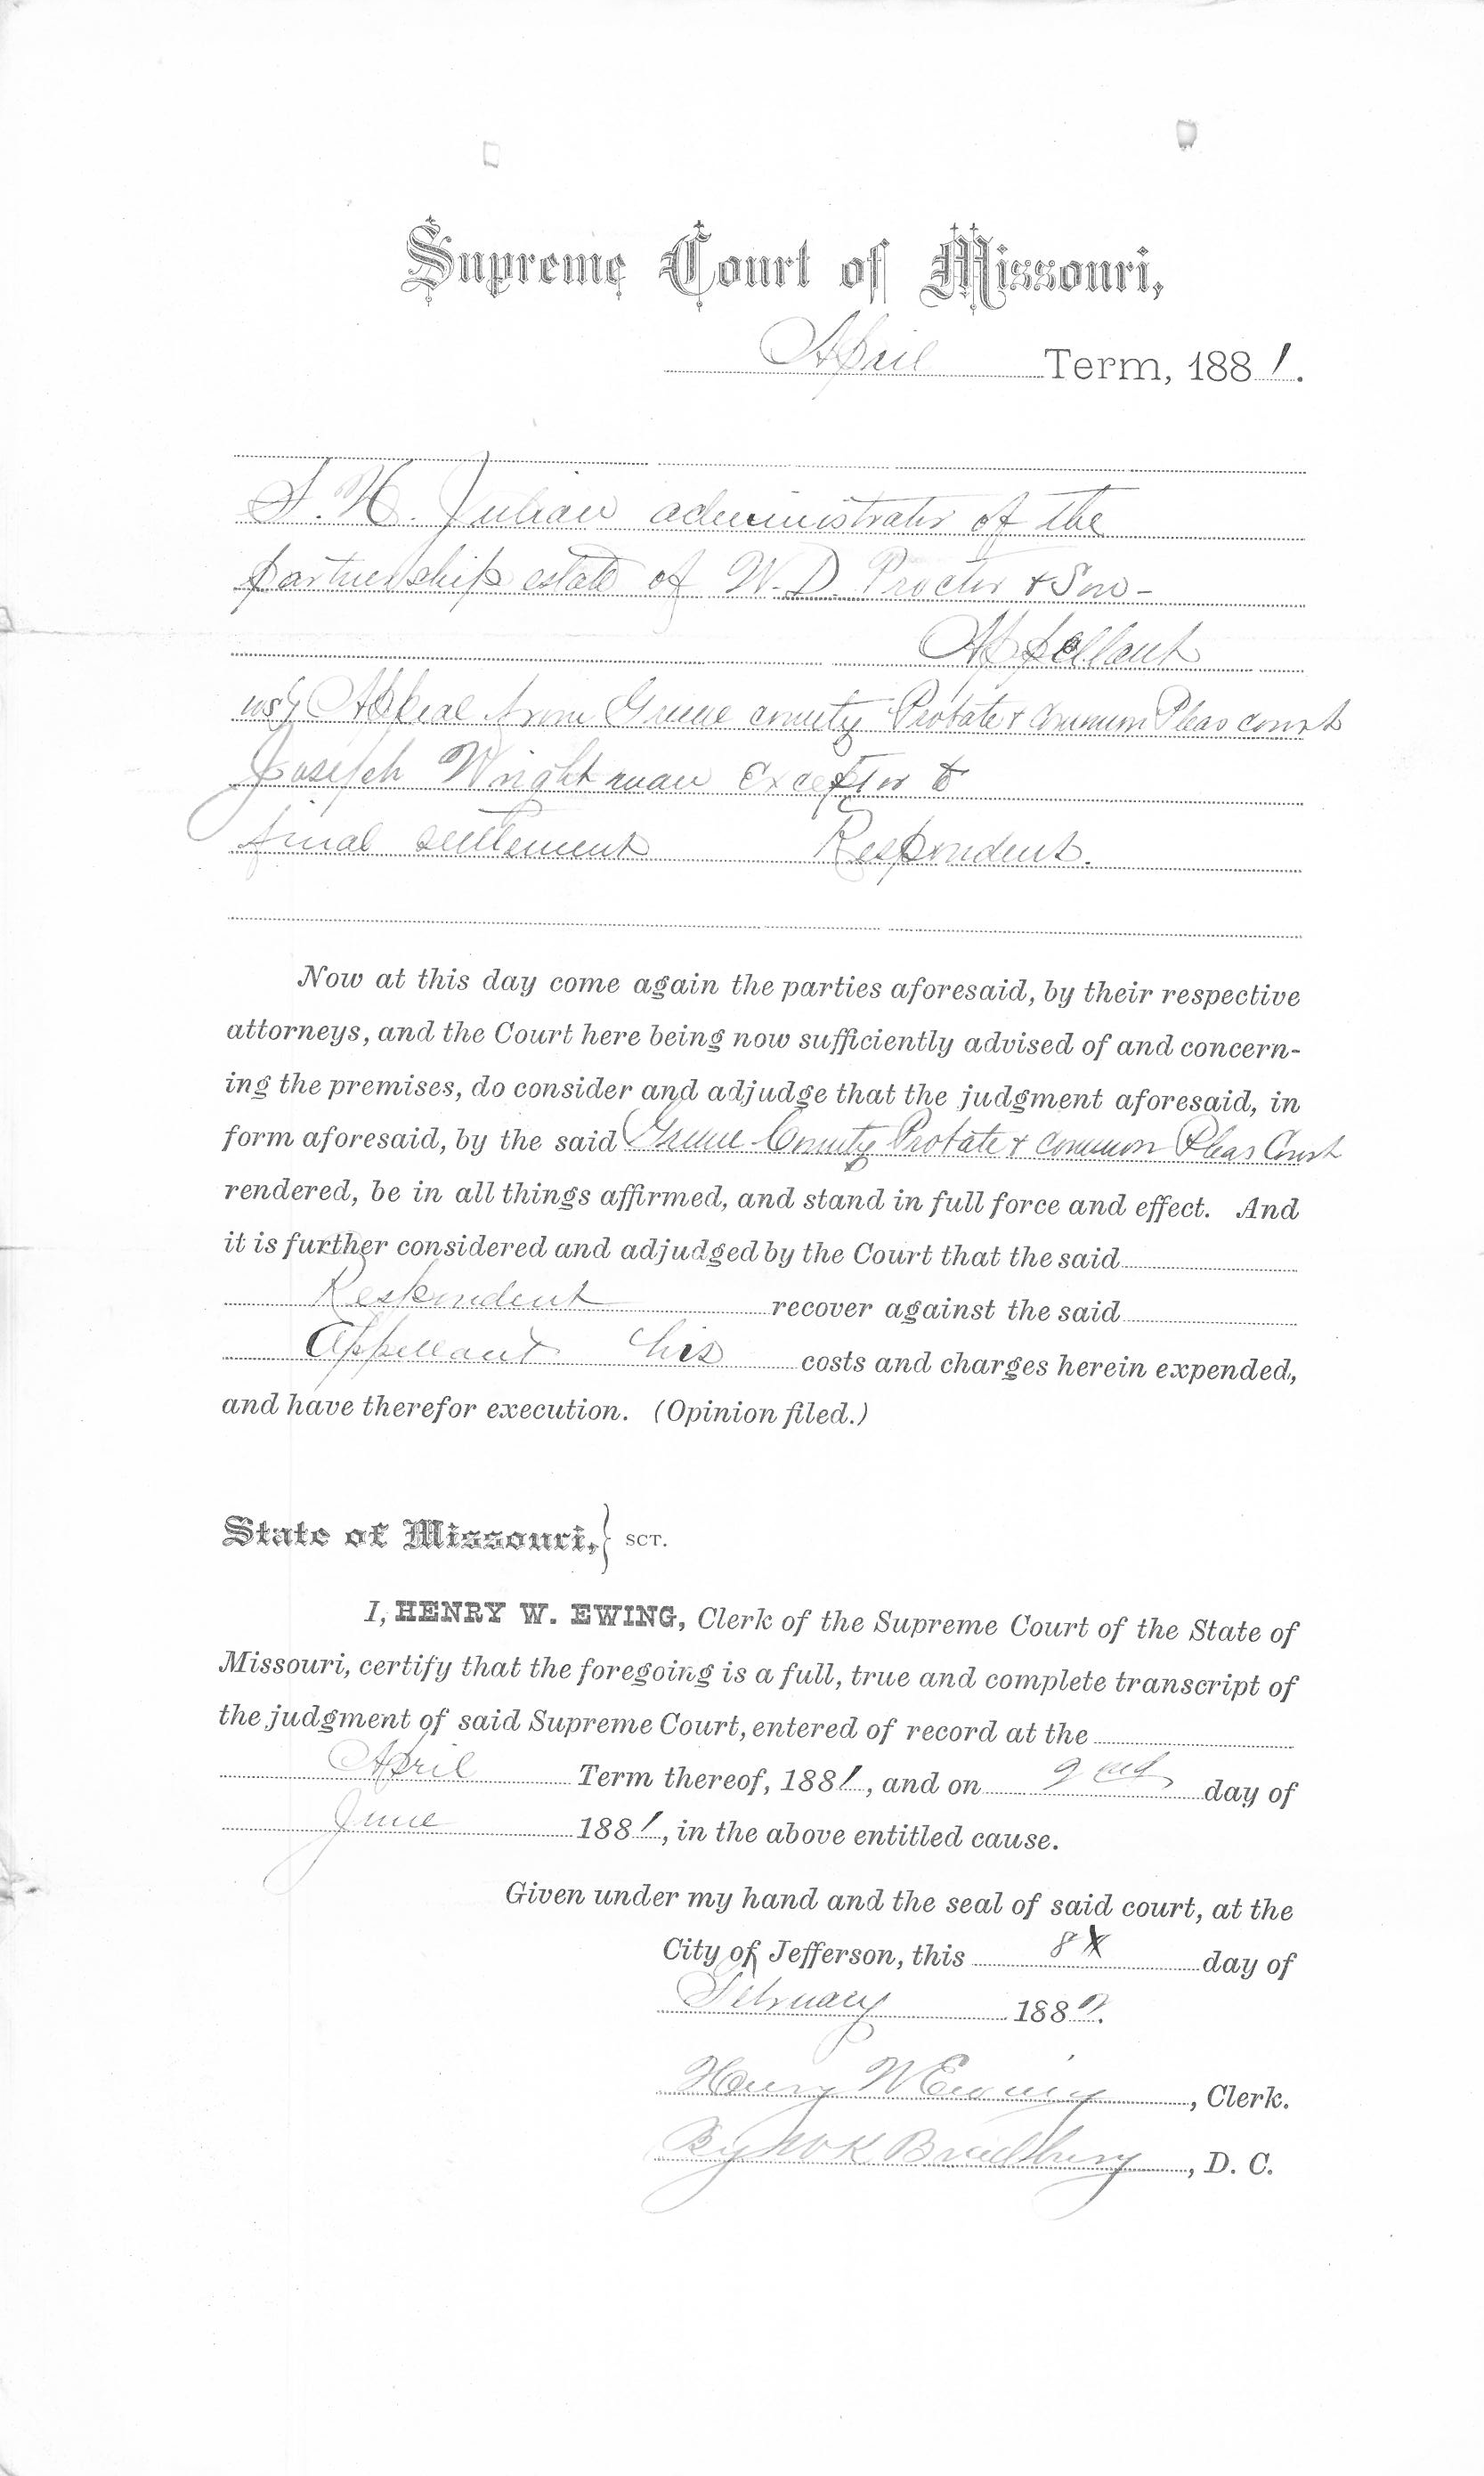 Supreme Court of Missouri,
April Term, 1881.
S. H. Julian administrator of the
partnership estate of W. D. Proctor & Son -
Appellant
vs } Appeal from Greene county Probate & Common Pleas court
Joseph Wrightman Exceptor to
final settlement Respondent.
Now at this day come again the parties aforesaid, by their respective
attorneys, and the Court here being now sufficiently advised of and concern-
ing the premises, do consider and adjudge that the judgment aforesaid, in
form aforesaid, by the said Greene County Probate & Common Pleas Court
rendered, be in all things affirmed, and stand in full force and effect. And
it is further considered and adjudged by the Court that the said
Respondent recover against the said
Appellant his costs and charges herein expended,
and have therefor execution. (Opinion filed.)
State of Missouri, } SCT.
I, HENRY W. EWING, Clerk of the Supreme Court of the State of
Missouri, certify that the foregoing is a full, true and complete transcript of
the judgment of said Supreme Court, entered of record at the
April Term thereof, 1881, and on 2nd day of
June 1881, in the above entitled cause.
Given under my hand and the seal of said court, at the
City of Jefferson, this 8 day of
February 1882.
Henry W Ewing, Clerk.
By Bradbury, D. C.